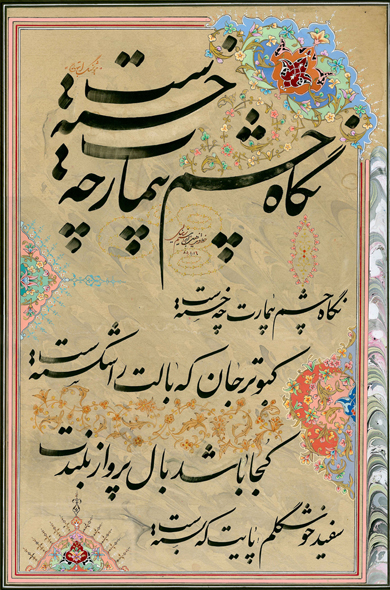 نگاه چشم بیمارت چه خسته‌ست
نگاه چشم بیمارت چه خسته‌ست
کبوتر جان که بالت را شکسته‌ست
کجا باشد بال پرواز بلندت
سفید خوشگلم پایت که بسته‌ست